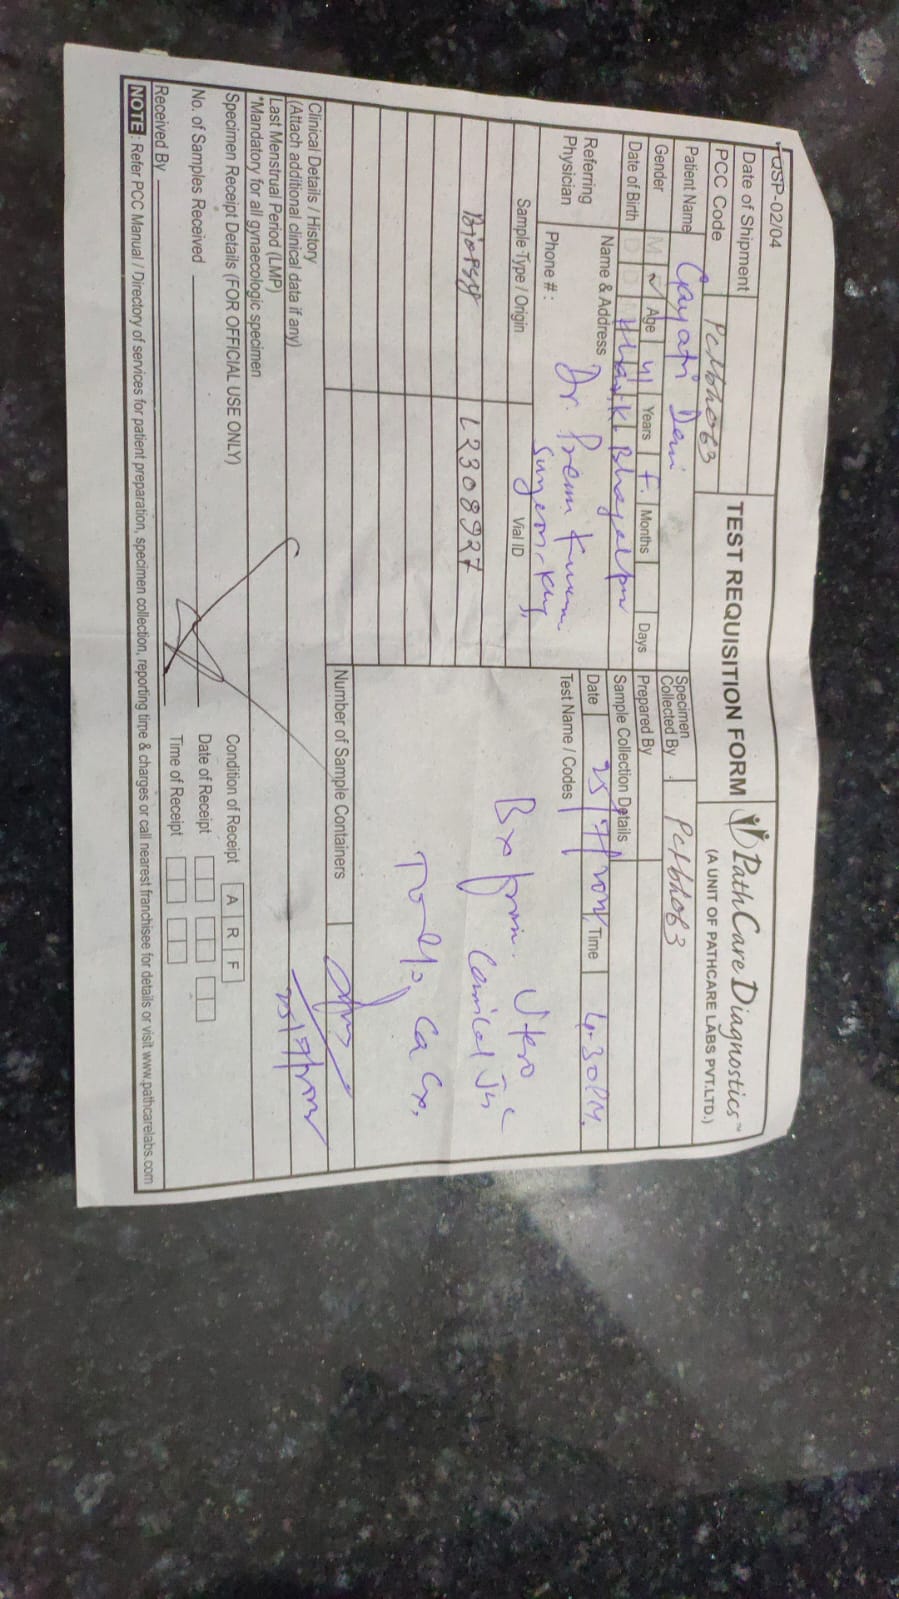 QSP-02/04
TEST REQUISITION FORM
PathCare Diagnostics™
(A UNIT OF PATHCARE LABS PVT.LTD.)
Date of Shipment
PCC Code
Specimen Collected By
Patient Name Gayatri Devi
Gender M Age 41 Years F. Months Days
Prepared By
Date of Birth D D Bhagalpur
Sample Collection Details
Referring Physician
Name & Address Dr. Prem Kumar
Surgeon
Phone # :
Date 25/7/ Time 4.30PM.
Sample Type / Origin Vial ID
Test Name / Codes
Biopsy L2308927
Bx from Utero
Cervical Jn
Ca Cx.
Number of Sample Containers
Clinical Details / History
(Attach additional clinical data if any)
Last Menstrual Period (LMP)
*Mandatory for all gynaecologic specimen
25/7/
Specimen Receipt Details (FOR OFFICIAL USE ONLY)
Condition of Receipt A R F
No. of Samples Received
Date of Receipt
Received By
Time of Receipt
NOTE : Refer PCC Manual / Directory of services for patient preparation, specimen collection, reporting time & charges or call nearest franchisee for details or visit www.pathcarelabs.com